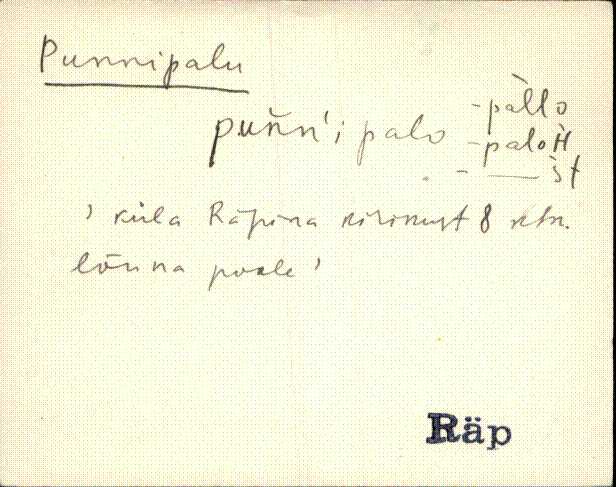 Punnipalu
puńń'i palo -pàllo
-paloH̀
- —— st̀
' küla Räpina kirikust 8 klm.
lõuna poole '
Räp